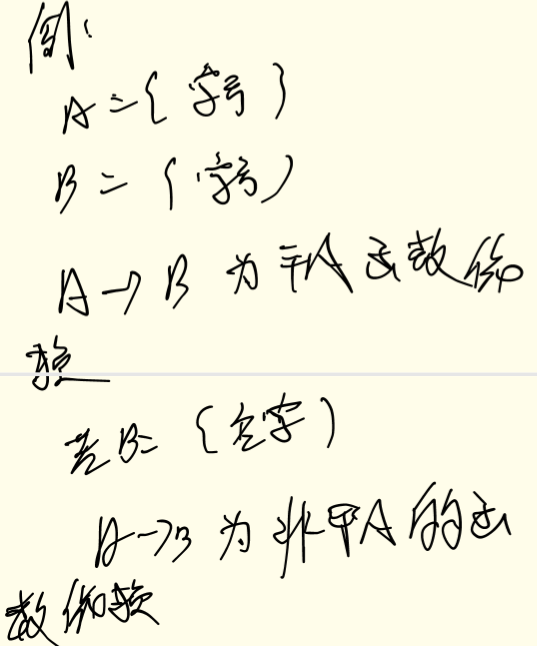 例:
A={学号}
B={学号}
A→B 为平凡函数依
赖
若B={名字}
A→B 为非平凡的函
数依赖